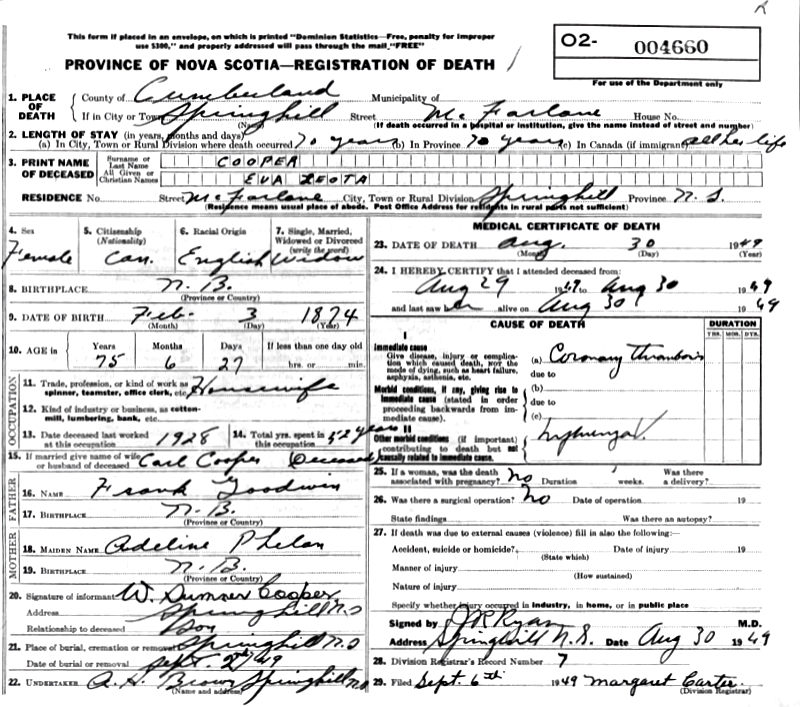 This form if placed in an envelope, on which is printed "Dominion Statistics—Free, penalty for improper
use $300," and properly addressed will pass through the mail "FREE"
O2- 004660
PROVINCE OF NOVA SCOTIA—REGISTRATION OF DEATH
For use of the Department only
1. PLACE OF DEATH
County of Cumberland Municipality of
If in City or Town Springhill Street McFarlane House No.
(Name) (If death occurred in a hospital or institution, give the name instead of street and number)
2. LENGTH OF STAY (in years, months and days)
(a) In City, Town or Rural Division where death occurred 70 years (b) In Province 70 years (c) In Canada (if immigrant) all her life
3. PRINT NAME OF DECEASED
Surname or Last Name COOPER
All Given or Christian Names EVA LEOTA
RESIDENCE No. Street McFarlane City, Town or Rural Division Springhill Province N.S.
(Residence means usual place of abode. Post Office Address for residents in rural parts not sufficient)
4. Sex Female
5. Citizenship (Nationality) Can.
6. Racial Origin English
7. Single, Married, Widowed or Divorced (write the word) Widow
8. BIRTHPLACE N.B.
(Province or Country)
9. DATE OF BIRTH Feb. 3 1874
(Month) (Day) (Year)
10. AGE in Years Months Days If less than one day old
75 6 27 hrs. or min.
OCCUPATION
11. Trade, profession, or kind of work as spinner, teamster, office clerk, etc. Housewife
12. Kind of industry or business, as cotton-mill, lumbering, bank, etc.
13. Date deceased last worked at this occupation 1928
14. Total yrs. spent in this occupation 52 years
15. If married give name of wife or husband of deceased Carl Cooper Deceased
FATHER
16. NAME Frank Goodwin
17. BIRTHPLACE N.B.
(Province or Country)
MOTHER
18. MAIDEN NAME Adeline Phelan
19. BIRTHPLACE N.B.
(Province or Country)
20. Signature of informant W. Sumner Cooper
Address Springhill N.S
Relationship to deceased Son
21. Place of burial, cremation or removal Springhill N.S
Date of burial or removal Sept. 2nd/49
22. UNDERTAKER A. H. Brown Springhill N.S
(Name and address)
MEDICAL CERTIFICATE OF DEATH
23. DATE OF DEATH Aug. 30 1949
(Month) (Day) (Year)
24. I HEREBY CERTIFY that I attended deceased from:
Aug 29 1949 to Aug 30 1949
and last saw her alive on Aug 30 1949
CAUSE OF DEATH DURATION
YRS. MOS. DYS.
I
Immediate cause
Give disease, injury or complication which caused death, not the mode of dying, such as heart failure, asphyxia, asthenia, etc.
(a) Coronary Thrombosis
due to
Morbid conditions, if any, giving rise to immediate cause (stated in order proceeding backwards from immediate cause).
(b)
due to
(c)
II
Other morbid conditions (if important) contributing to death but not causally related to immediate cause.
25. If a woman, was the death associated with pregnancy? No Duration weeks. Was there a delivery?
26. Was there a surgical operation? No Date of operation 19
State findings Was there an autopsy?
27. If death was due to external causes (violence) fill in also the following:
Accident, suicide or homicide? Date of injury 19
(State which)
Manner of injury
(How sustained)
Nature of injury
Specify whether injury occurred in industry, in home, or in public place
Signed by J R Ryan M.D.
Address Springhill N.S. Date Aug 30 1949
28. Division Registrar's Record Number 7
29. Filed Sept. 6th 1949 Margaret Carter
(Division Registrar)